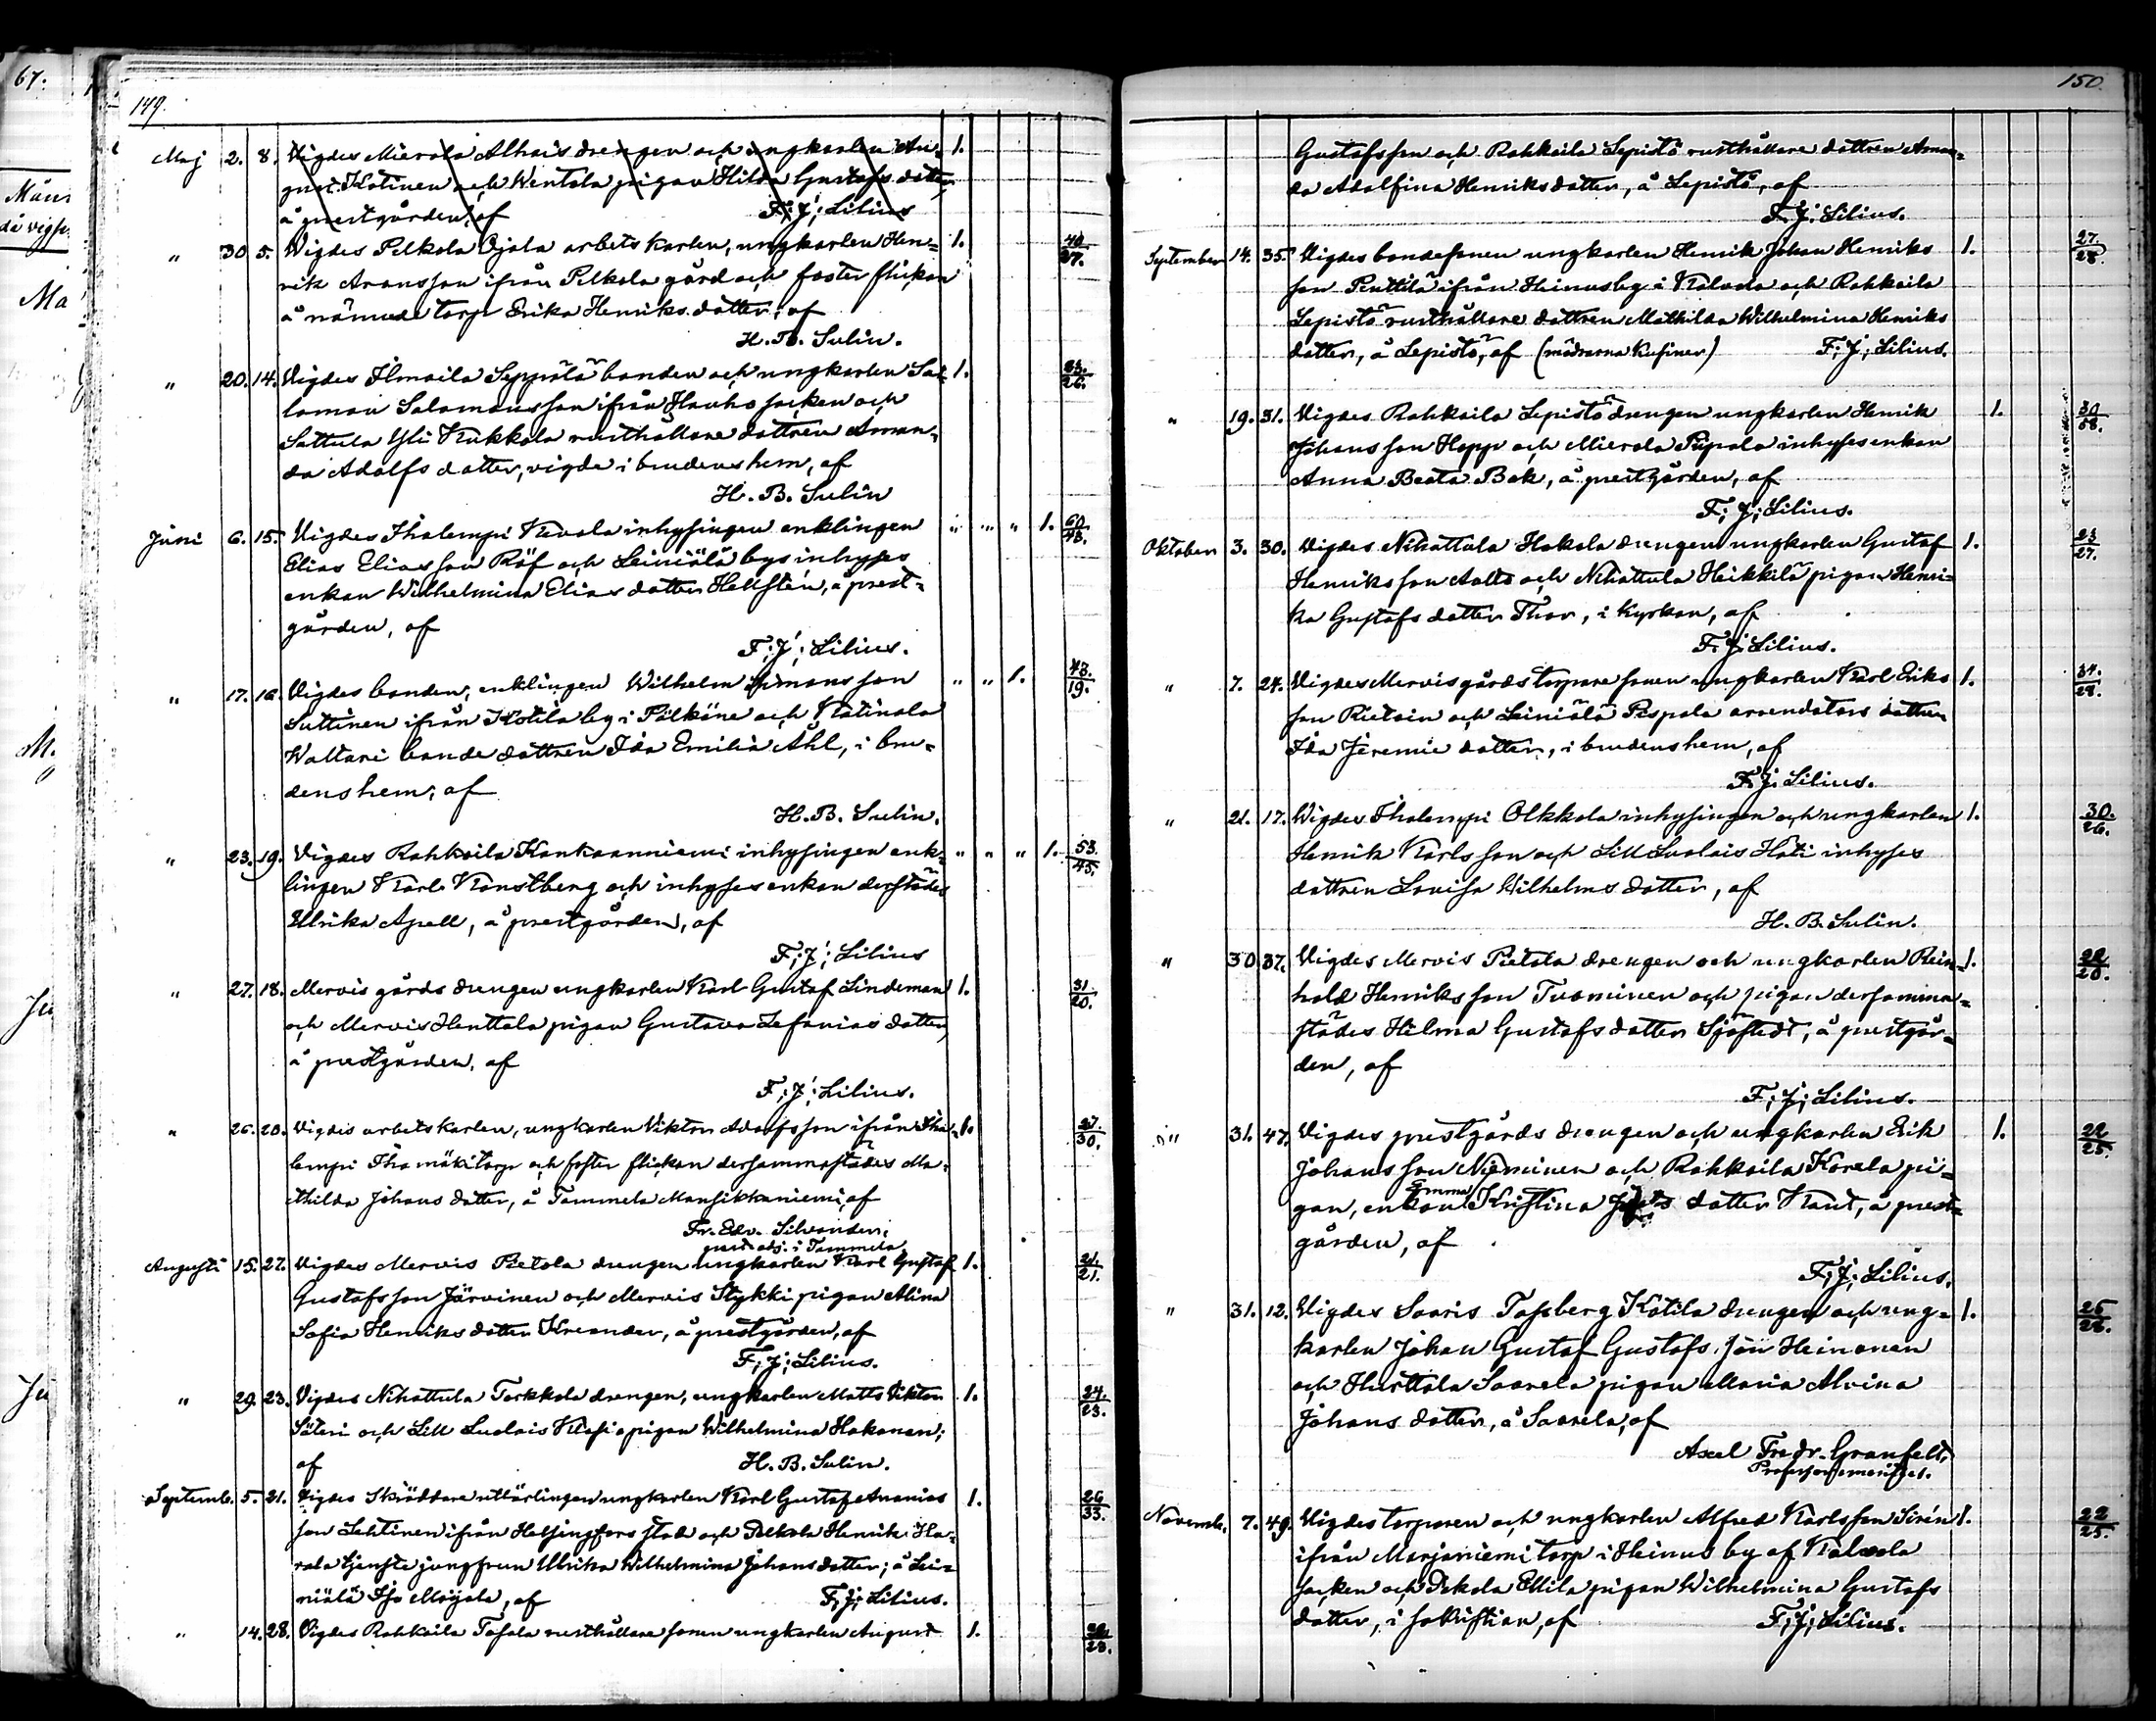 67.
149.
Maj 2. 8. Vigdes Mierola Alhais drengen och ungkarlen Au- 1.
gust Kotinen och Wentola pigan Hilda Gustafs dotter,
å prestgården, af F; J; Lilius
" 30 5. Wigdes Pelkola Ojala arbets karlen, ungkarlen Hen- 1. 40/27.
rik Aronsson ifrån Pelkola gård och foster flickan
å nämnde torp Erika Henriks dotter, af
H. B. Sulin.
" 20. 14. Vigdes Ilmoila Seppälä bonden och ungkarlen Sa- 1. 23./26.
lomon Salomonsson ifrån Hauho socken och
Sattula Yli Kukkola rusthållare dottren Aman-
da Adolfs dotter, vigde i brudens hem, af
H. B. Sulin
Juni 6. 15. Vigdes Ihalempi Kevola inhysingen enklingen " " " 1. 60/48.
Elias Eliasson Röf och Leiniälä bys inhyses
enkan Wilhelmina Elias dotter Hellstén, å prest-
gården, af
F; J; Lilius.
" 17. 16. Vigdes bonden, enklingen Wilhelm Simonsson " " 1. 43./19.
Suttinen ifrån Kotila by i Pälkäne och Katinala
Wattari bonde dottren Ida Emilia Ahl, i bru-
dens hem, af
H. B. Sulin.
" 23. 19. Vigdes Rahkoila Kankaanniemi inhysingen enk- " " " 1. 53./45.
lingen Karl Konstberg och inhyses enkan derstädes
Ulrika Apell, å prestgården, af
F; J; Lilius
" 27. 18. Mervis gårds drengen ungkarlen Karl Gustaf Lindeman 1. 31./20.
och Mervis Henttala pigan Gustava Sefanias dotter,
å prestgården, af
F; J; Lilius.
" 26. 20. Vigdis arbetskarlen, ungkarlen Viktor Adolfsson ifrån Iha- 1. 27./30.
lempi Ihamäki torp och foster flickan dersammastädes Ma-
thilda Johans dotter, å Tammela Mansikkaniemi, af
Fr. Edv. Silvander,
past. adj. i Tammela
Augusti 15. 27. Vigdes Mervis Pietola drengen ungkarlen Karl Gustaf 1. 21./21.
Gustafsson Järvinen och Mervis Stykki pigan Alina
Sofia Henriks dotter Kreander, å prestgården, af
F; J; Lilius.
" 29. 23. Vigdes Nihattula Torkkola drengen, ungkarlen Matts Viktor 1. 24./23.
Säteri och Lill Luolais pigan Wilhelmina Hakonen,
af H. B. Sulin.
Septemb. 5. 21. Vigdes Skräddare utlärlingen ungkarlen Karl Gustaf Ananias 1. 26/33.
son Lehtinen ifrån Helsingfors stad och Pelkola Henrik Ha-
rola tjenste jungfrun Ulrika Wilhelmina Johans dotter; å Lei-
niälä Iso Moijala, af F; J; Lilius.
" 14. 28. Vigdes Rahkoila Tofala rusthållare sonen ungkarlen August 1.
150.
Gustafsson och Rahkoila Lepistö rusthållare dottren Aman-
da Adolfina Henriksdotter, å Lepistö, af
F. J. Lilius.
September 14. 35. Vigdes bondesonen ungkarlen Henrik Johan Henriks 1. 27./28.
son Penttilä ifrån Heinusby i Kalvola och Rahkoila
Lepistö rusthållare dottren Mathilda Wilhelmina Henriks
dotter, å Lepistö, af (mödrarna kusiner) F; J; Lilius.
" 19. 31. Vigdes Rahkoila Lepistö drengen ungkarlen Henrik 1. 30/58.
Johansson Hopp och Mierola Piipola inhyses enkan
Anna Beata Bok, å prestgården, af
F; J; Lilius.
Oktober 3. 30. Vigdes Nihattula Hakola drengen ungkarlen Gustaf 1. 23/27.
Henriksson Aalto och Nihattula Heikkilä pigan Henri-
ka Gustafs dotter Thor, i kyrkan, af
F. J. Lilius.
" 7. 24. Vigdes Mervis gårds torpare sonen ungkarlen Karl Eriks 1. 34./28.
son Rietoin och Leiniälä Pispala arrendators dottren
Ida Jeremie dotter, i brudens hem, af
F. J. Lilius.
" 21. 17. Wigdes Ihalempi Olkkola inhysingen och ungkarlen 1. 30./26.
Henrik Karlsson och Lill Luolais Hoti inhyses
dottren Lovisa Wilhelms dotter, af
H. B. Sulin.
" 30 37. Vigdes Mervis Pietola drengen och ungkarlen Rein- 1. 22/20.
hold Henriksson Tuominen och pigan dersamma-
städes Hilma Gustafs dotter Sjöstedt, å prestgår-
den, af
F; J; Lilius.
" 31. 47. Vigdes prestgårds drengen och ungkarlen Erik 1. 22/25.
Johansson Nieminen och Rahkoila Korela pi-
gan, enkan Emma Kristina dotter Kant, å prest-
gården, af
F; J; Lilius.
" 31. 12. Vigdes Saaris Tassberg Kotila drengen och ung- 1. 25/28.
karlen Johan Gustaf Gustafs son Heinonen
och Hurttala Saarela pigan Maria Alvina
Johans dotter, å Saarela, af
Axel Fredr. Granfelt,
Professor emeritus.
Novemb. 7. 49. Vigdes torparen och ungkarlen Alfred Karlsson Sirén 1. 22/25.
ifrån Marjaniemi torp i Heinus by af Kalvola
socken och Pekola Ellilä pigan Wilhelmina Gustafs
dotter, i sakristian, af F; J; Lilius.